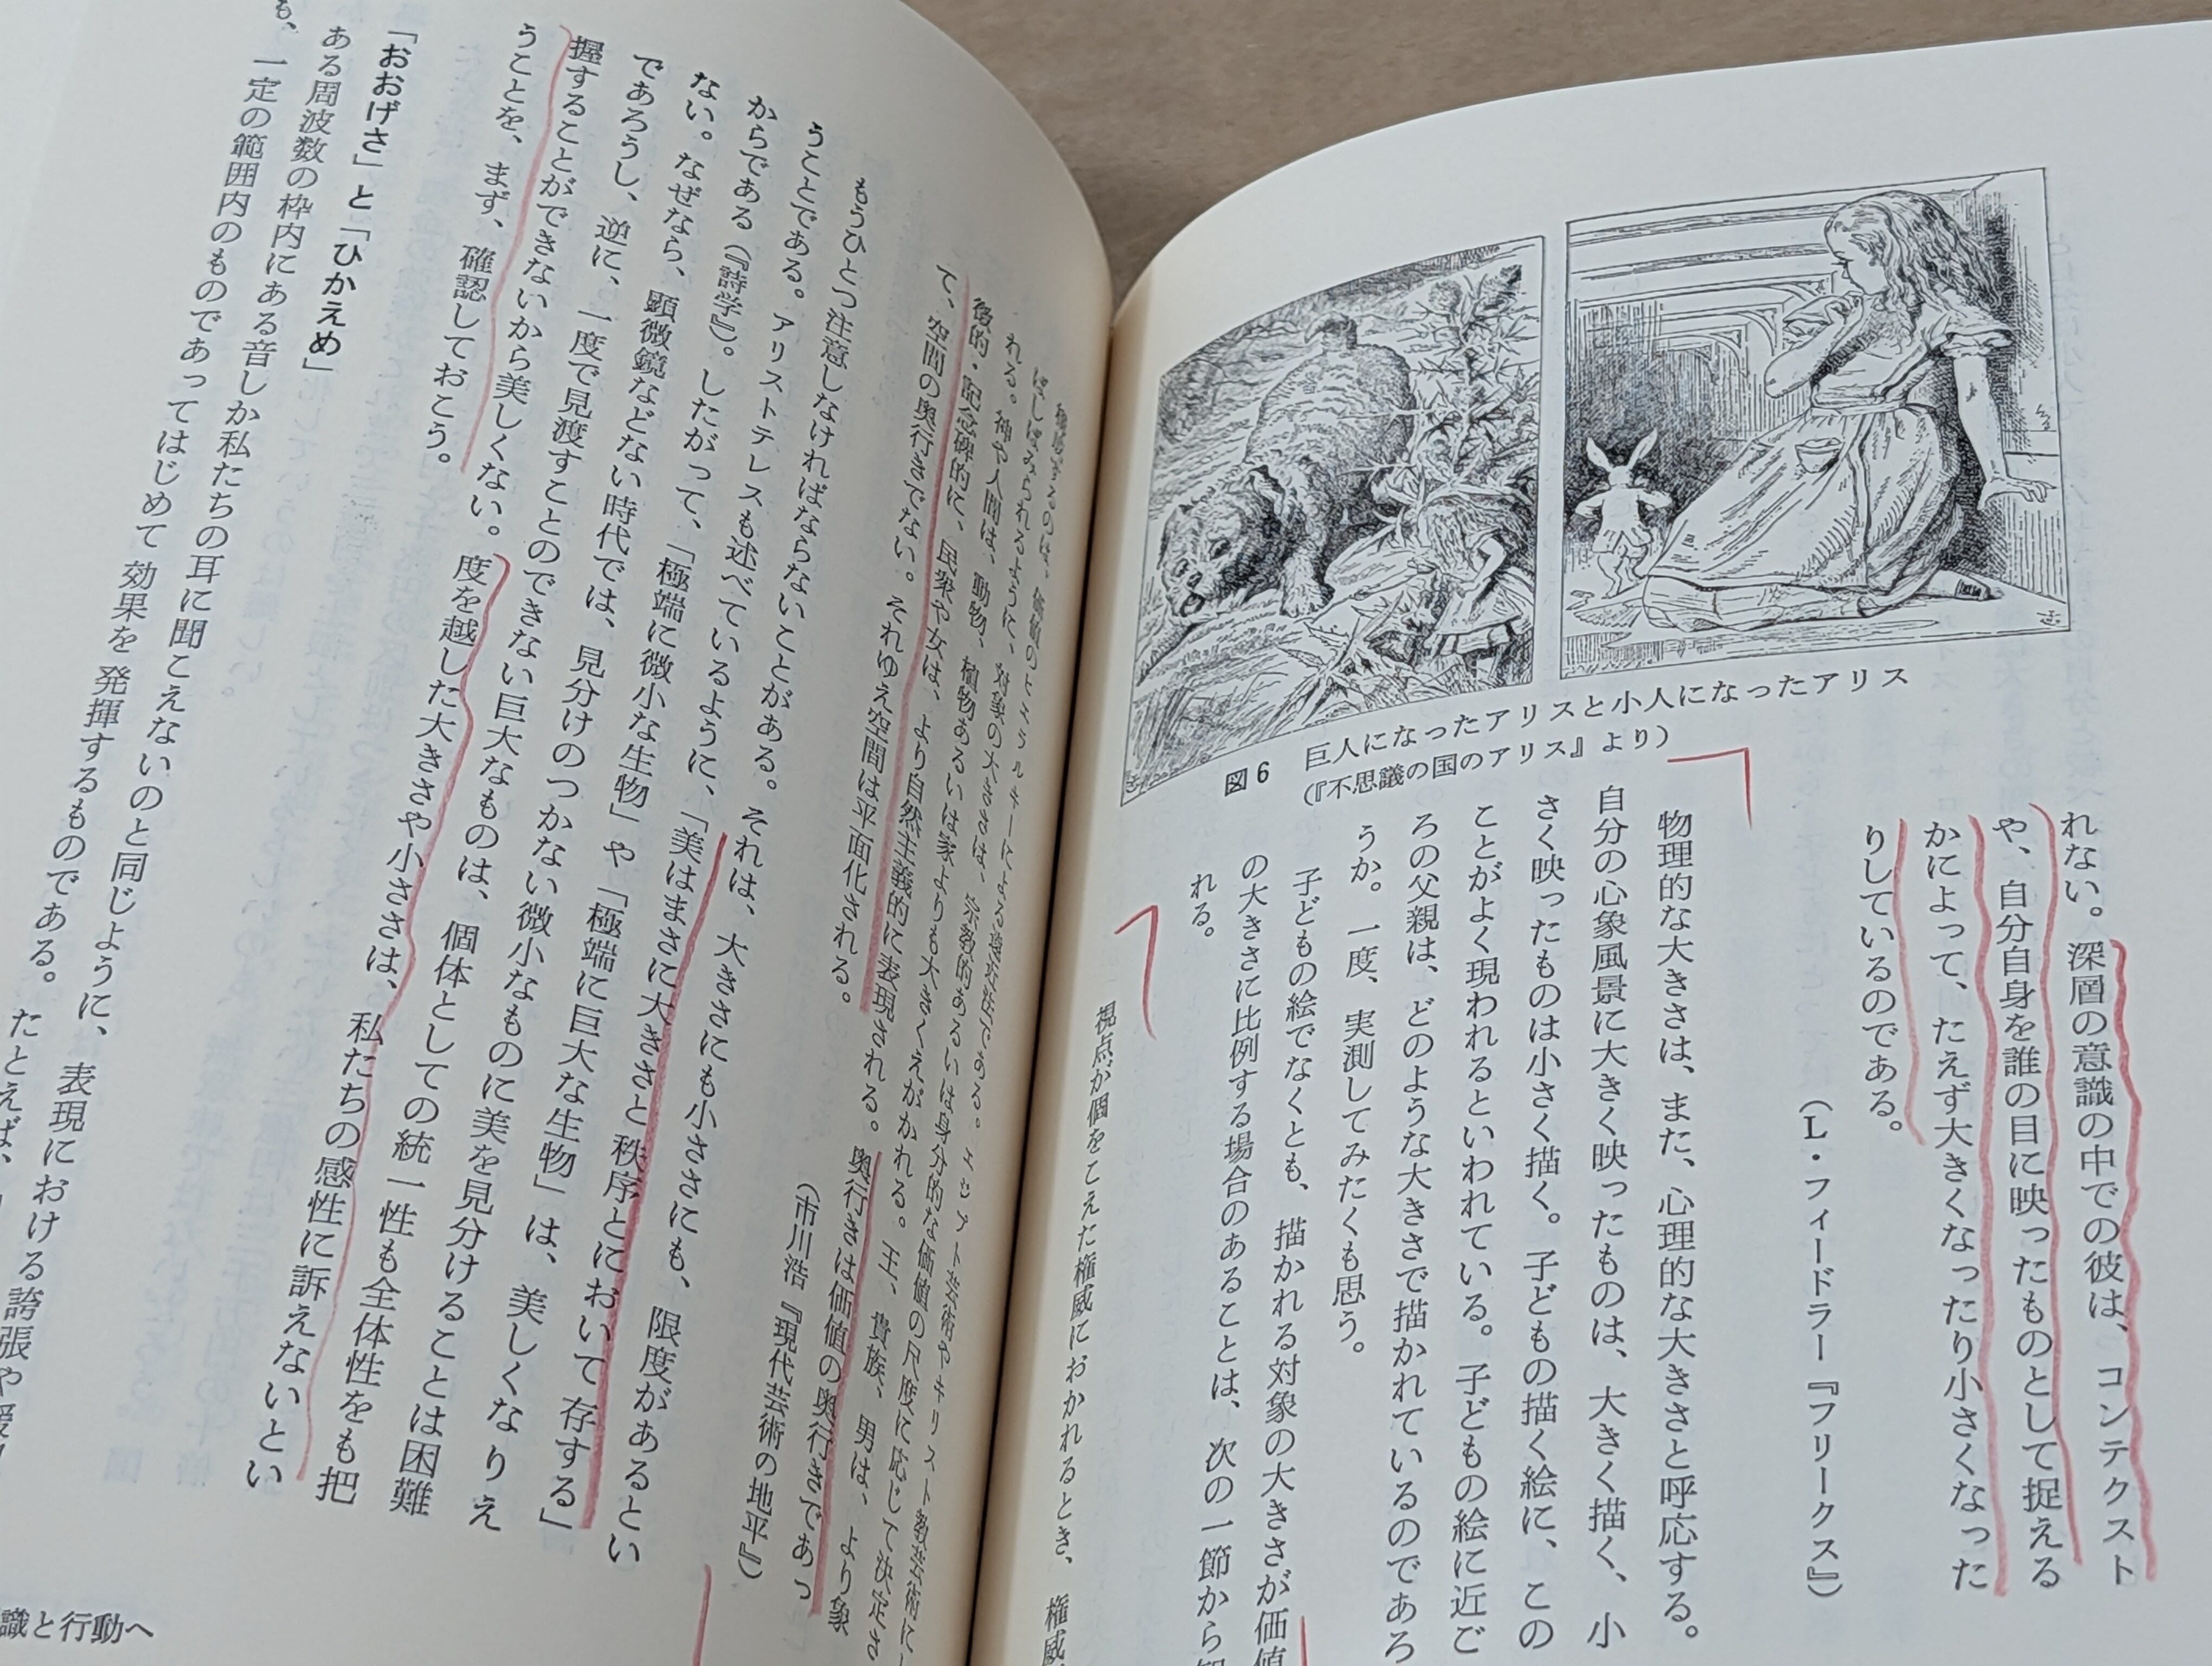 れない。深層の意識の中での彼は、コンテクスト
や、自分自身を誰の目に映ったものとして捉える
かによって、たえず大きくなったり小さくなった
りしているのである。
（L・フィードラー『フリークス』）
図6 巨人になったアリスと小人になったアリス
（『不思議の国のアリス』より）
物理的な大きさは、また、心理的な大きさと呼応する。
自分の心象風景に大きく映ったものは、大きく描く、小
さく映ったものは小さく描く。子どもの描く絵に、この
ことがよく現われるといわれている。子どもの絵に近ご
ろの父親は、どのような大きさで描かれているのであろ
うか。一度、実測してみたくも思う。
子どもの絵でなくとも、描かれる対象の大きさが価値
の大きさに比例する場合のあることは、次の一節から
れる。
視点が個をこえた権威におかれるとき、権威
価値のヒエラルキーによる遠近法である。エジプト芸術やキリスト教芸術に
しばしばみられるように、対象の大きさは、宗教的あるいは身分的な価値の尺度に応じて決定さ
れる。神や人間は、動物、植物あるいは家よりも大きくえがかれる。王、貴族、男は、より象
徴的・記念碑的に、民衆や女は、より自然主義的に表現される。奥行きは価値の奥行きであっ
て、空間の奥行きでない。それゆえ空間は平面化される。
（市川浩『現代芸術の地平』）
もうひとつ注意しなければならないことがある。それは、大きさにも小ささにも、限度があるとい
うことである。アリストテレスも述べているように、「美はまさに大きさと秩序とにおいて存する」
からである（『詩学』）。したがって、「極端に微小な生物」や「極端に巨大な生物」は、美しくなりえ
ない。なぜなら、顕微鏡などない時代では、見分けのつかない微小なものに美を見分けることは困難
であろうし、逆に、一度で見渡すことのできない巨大なものは、個体としての統一性も全体性をも把
握することができないから美しくない。度を越した大きさや小ささは、私たちの感性に訴えないとい
うことを、まず、確認しておこう。
「おおげさ」と「ひかえめ」
ある周波数の枠内にある音しか私たちの耳に聞こえないのと同じように、表現における誇張や
も、一定の範囲内のものであってはじめて効果を発揮するものである。たとえば、
識と行動へ